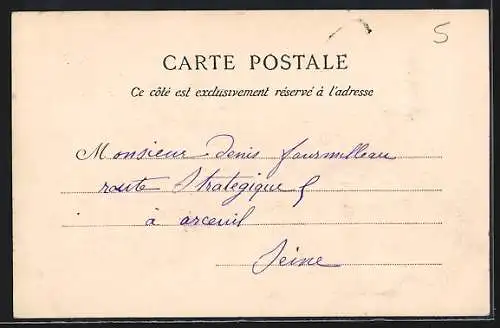 5
CARTE POSTALE
Ce côté est exclusivement réservé à l'adresse
Monsieur Denis fourmilleau
route Strategique 5
à arceuil
Seine